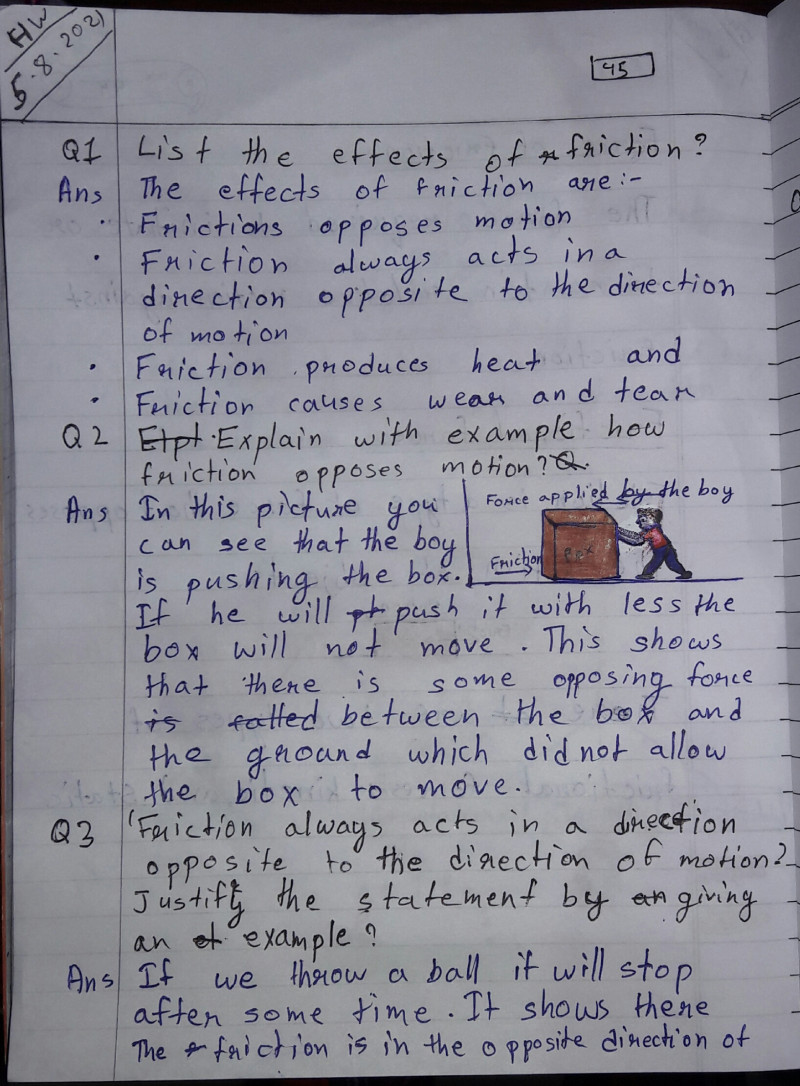 HW
5.8.2021
45
Q1 List the effects of friction?
Ans The effects of friction are:-
· Frictions opposes motion
· Friction always acts in a
direction opposite to the direction
of motion
· Friction produces heat and
· Friction causes wear and tear
Q2 Etpt Explain with example how
friction opposes motion? Q.
Ans In this picture you
can see that the boy
is pushing the box.
Force applied by the boy
Friction
Box
If he will pt push it with less the
box will not move. This shows
that there is some opposing force
is called between the box and
the ground which did not allow
the box to move.
Q3 'Friction always acts in a direction
opposite to the direction of motion?
Justify the statement by an giving
an et example?
Ans If we throw a ball it will stop
after some time. It shows there
The friction is in the opposite direction of